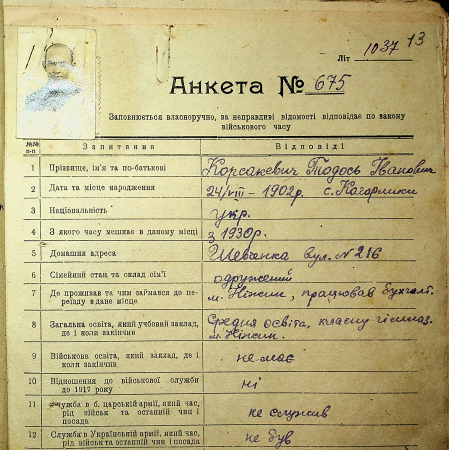 Літ 1037 13
Анкета № 675
Заповнюється власноручно, за неправдиві відомості відповідає по закону
військового часу
№№ п-п Запитання Відповіді
1 Прізвище, ім'я та по-батькові Корсакевич Тодось Іванович
2 Дата та місце народження 24/VIII - 1902р. с. Кагарлики
3 Національність укр.
4 З якого часу мешкає в даному місці з 1930р.
5 Домашня адреса Шевченка вул. № 216
6 Сімейний стан та склад сім'ї одружений
7 Де проживав та чим займався до пе-
реїзду в дане місце м. Ніжин, працював бухгалт.
8 Загальна освіта, який учбовий заклад,
де і коли закінчив Средня освіта, класну гімназ.
м. Ніжин.
9 Військова освіта, який заклад, де і
коли закінчив не має
10 Відношення до військової служби
до 1917 року ні
11 Служба в б. царській армії, який час,
рід військ та останній чин і
посада не служив
12 Служба в Українській армії, який час,
рід військ та останній чин і посада не був